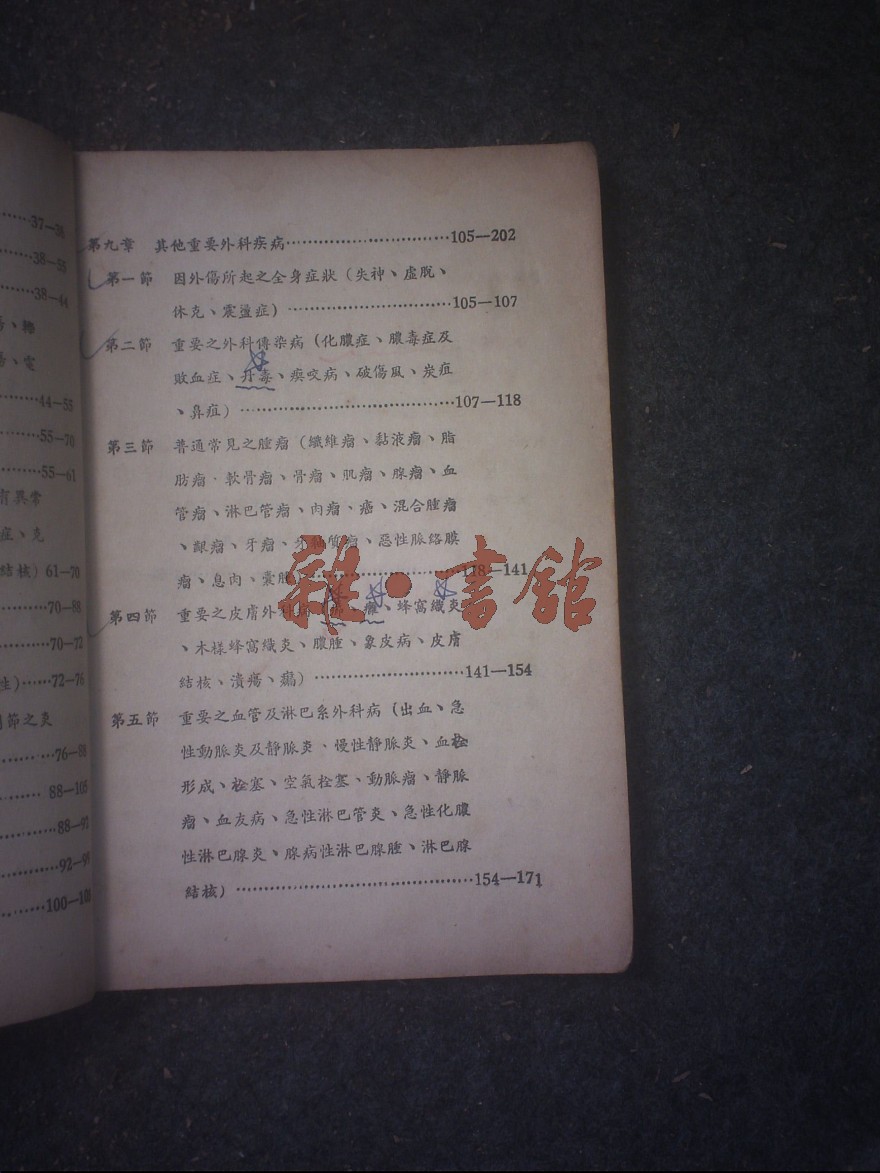 37—38
38—55
38—44
44—55
55—70
55—61
育異常
結核) 61—70
70—88
70—72
性)……72—76
節之炎
76—88
88—105
88—92
100—10
第九章 其他重要外科疾病……………………………105—202
第一節 因外傷所起之全身症狀(失神、虛脫、
休克、震盪症)……………………………105—107
第二節 重要之外科傳染病(化膿症、膿毒症及
敗血症、丹毒、瘈咬病、破傷風、炭疽
、鼻疽)……………………………………107—118
第三節 普通常見之腫瘤(纖維瘤、黏液瘤、脂
肪瘤·軟骨瘤、骨瘤、肌瘤、腺瘤、血
管瘤、淋巴管瘤、肉瘤、癌、混合腫瘤
、齦瘤、牙瘤、牙釉質瘤、惡性脈絡膜
瘤、息肉、囊腫)……………………………118—141
第四節 重要之皮膚外科病(癤、癰、蜂窩織炎
、木樣蜂窩織炎、膿腫、象皮病、皮膚
結核、潰瘍、鷄)……………………………141—154
第五節 重要之血管及淋巴系外科病(出血、急
性動脈炎及靜脈炎、慢性靜脈炎、血栓
形成、栓塞、空氣栓塞、動脈瘤、靜脈
瘤、血友病、急性淋巴管炎、急性化膿
性淋巴腺炎、腺病性淋巴腺腫、淋巴腺
結核)………………………………………154—171
雜·書館